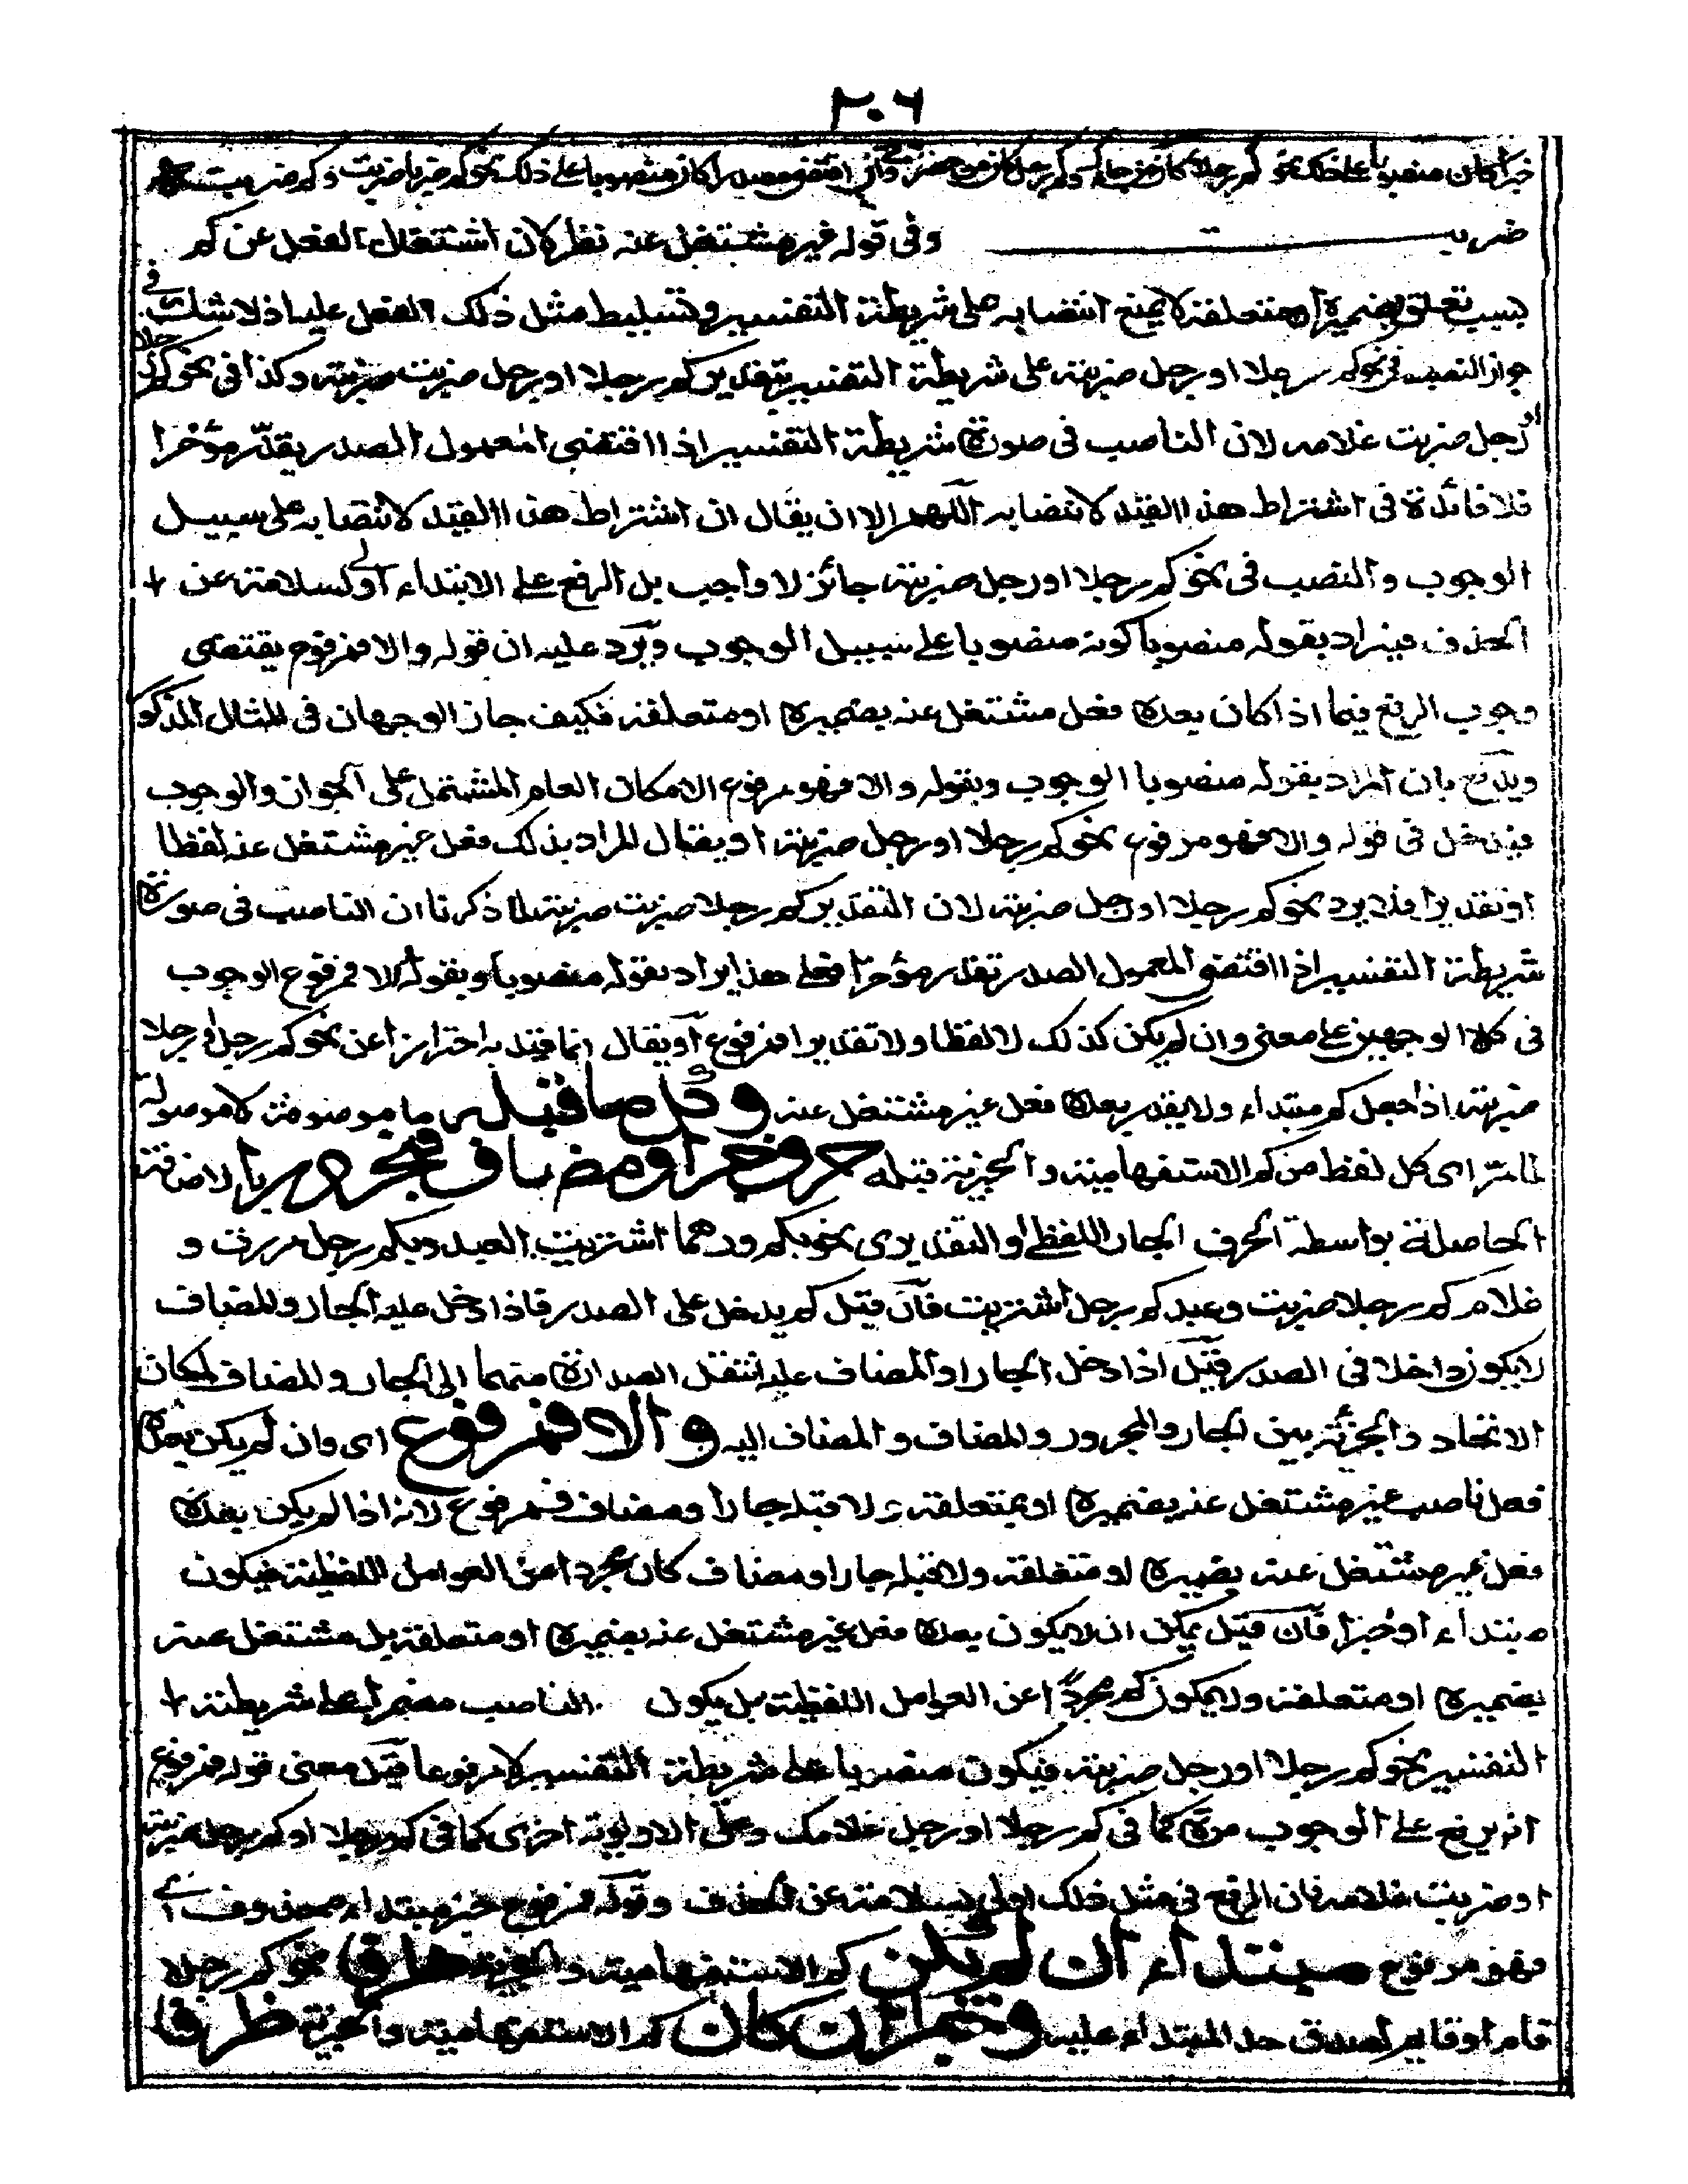 ٢٠٦
خبرا كان منصوبا على ذلك نحو كم رجلا كان وان اقتضى مصدرا كان منصوبا على ذلك نحو كم ضربا ضربت وكم ضربت
ضربت وفى قوله غير مشتغل عنه نظر لان اشتغال الفعل عن كم
بسبب تعلق بضميره او متعلقه لا يمنع انتصابه على شريطة التفسير وتسليط مثل ذلك الفعل عليه اذ لا شك فى
جواز النصب فى نحو كم رجلا او رجل ضربته على شريطة التفسير بتقدير كم رجلا او رجل ضربت ضربته وكذا فى نحو كم رجلا
او رجل ضربت غلامه لان الناصب فى صورة شريطة التفسير اذا اقتضى المعمول الصدر يقدر مؤخرا
فلا فائدة فى اشتراط هذا القيد لانتصابه اللهم الا ان يقال ان اشتراط هذا القيد لانتصابه على سبيل
الوجوب والنصب فى نحو كم رجلا او رجل ضربته جائز لا واجب بل الرفع على الابتداء اولى لسلامته عن
الحذف فيراد بقوله منصوبا كونه منصوبا على سبيل الوجوب ويرد عليه ان قوله والا فمرفوع يقتضى
وجوب الرفع فيما اذا كان بعده فعل مشتغل عنه بضميره او متعلقه فكيف جاز الوجهان فى المثال المذكور
ويدفع بان المراد بقوله منصوبا الوجوب وبقوله والا فهو مرفوع الامكان العام المشتمل على الجواز والوجوب
فيدخل فى قوله والا فهو مرفوع نحو كم رجلا او رجل ضربته او يقال المراد بذلك فعل غير مشتغل عنه لفظا
او تقديرا فلا يرد نحو كم رجلا او رجل ضربته لان التقدير كم رجلا ضربت ضربته لما ذكرنا ان الناصب فى صورة
شريطة التفسير اذا اقتضى المعمول الصدر تقدر مؤخرا فعلى هذا يراد بقوله منصوبا وبقوله الا فمرفوع الوجوب
فى كلا الوجهين على معنى وان لم يكن كذلك لا لفظا ولا تقديرا فمرفوع او يقال انما قيد به احترازا عن نحو كم رجل او رجلا
ضربته اذا جعل كم مبتداء ولا يقدر بعده فعل غير مشتغل عنه وكل ما قبله ما موصوفة لا موصولة
لما مر اى كل لفظ من كم الاستفهامية والخبرية قبله حرف جر او مضاف فمجرور بالاضافة
الحاصلة بواسطة الحرف الجار اللفظى او التقديرى نحو بكم درهما اشتريت العبد وبكم رجل مررت و
غلام كم رجلا ضربت وعبد كم رجل اشتريت فان قيل كم يدخل على الصدر فاذا دخل عليه الجار والمضاف
لا يكون داخلا فى الصدر قيل اذا دخل الجار او المضاف عليه انتقل الصدارة منهما الى الجار والمضاف لمكان
الاتحاد والجزئية بين الجار والمجرور والمضاف و المضاف اليه والا فمرفوع اى وان لم يكن بعده
فعل ناصب غير مشتغل عنه بضميره او بمتعلقه ولا قبله جارا ومضاف فمرفوع لانه اذا لم يكن بعده
فعل غير مشتغل عنه بضميره او متعلقه ولا قبله جارا ومضاف كان مجردا من العوامل اللفظية فيكون
مبتداء او خبرا فان قيل يمكن ان لا يكون بعده فعل غير مشتغل عنه بضميره او متعلقه بل مشتغل عنه
بضميره او متعلقه ولا يكون كم مجردا عن العوامل اللفظية بل يكون الناصب مضمرا على شريطة
التفسير نحو كم رجلا او رجل ضربته فيكون منصوبا على شريطة التفسير لا مرفوعا قيل معنى قوله فمرفوع
انه يرفع على الوجوب مرة كما فى كم رجلا او رجل غلامك وعلى الاولوية اخرى كما فى كم رجلا او كم رجل ضربته
او ضربت غلامه فان الرفع فى مثل ذلك اولى لسلامته عن الحذف وقوله فمرفوع خبر مبتداء محذوف اى
فهو مرفوع مبتداء ان لم يكن كم الاستفهامية والخبرية ظرفا نحو كم رجلا
قام او قائم لصدق حد المبتداء عليه وخبر ان كان كم الاستفهامية والخبرية ظرفا